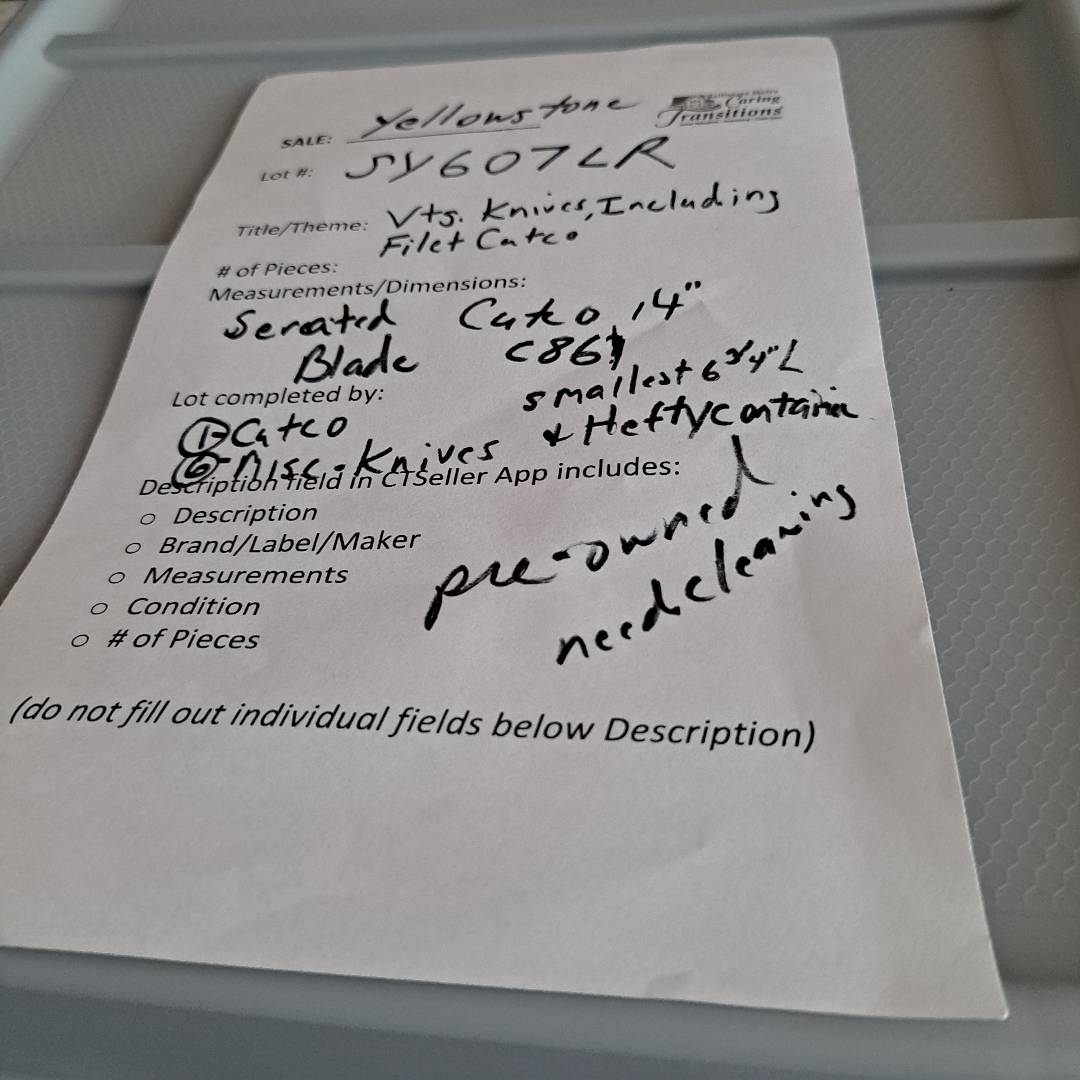 SALE: Yellowstone
Caring
Transitions
Lot #: SY607LR
Title/Theme: Vtg. Knives, Including
Filet Cutco
# of Pieces:
Measurements/Dimensions:
Serated Cutco 14"
Blade
smallest 6 3/4" L
Lot completed by:
& Hefty container
1- Cutco
6- Misc. Knives
Description field in CTSeller App includes:
o Description
o Brand/Label/Maker
o Measurements
o Condition
o # of Pieces
pre-owned
need cleaning
(do not fill out individual fields below Description)